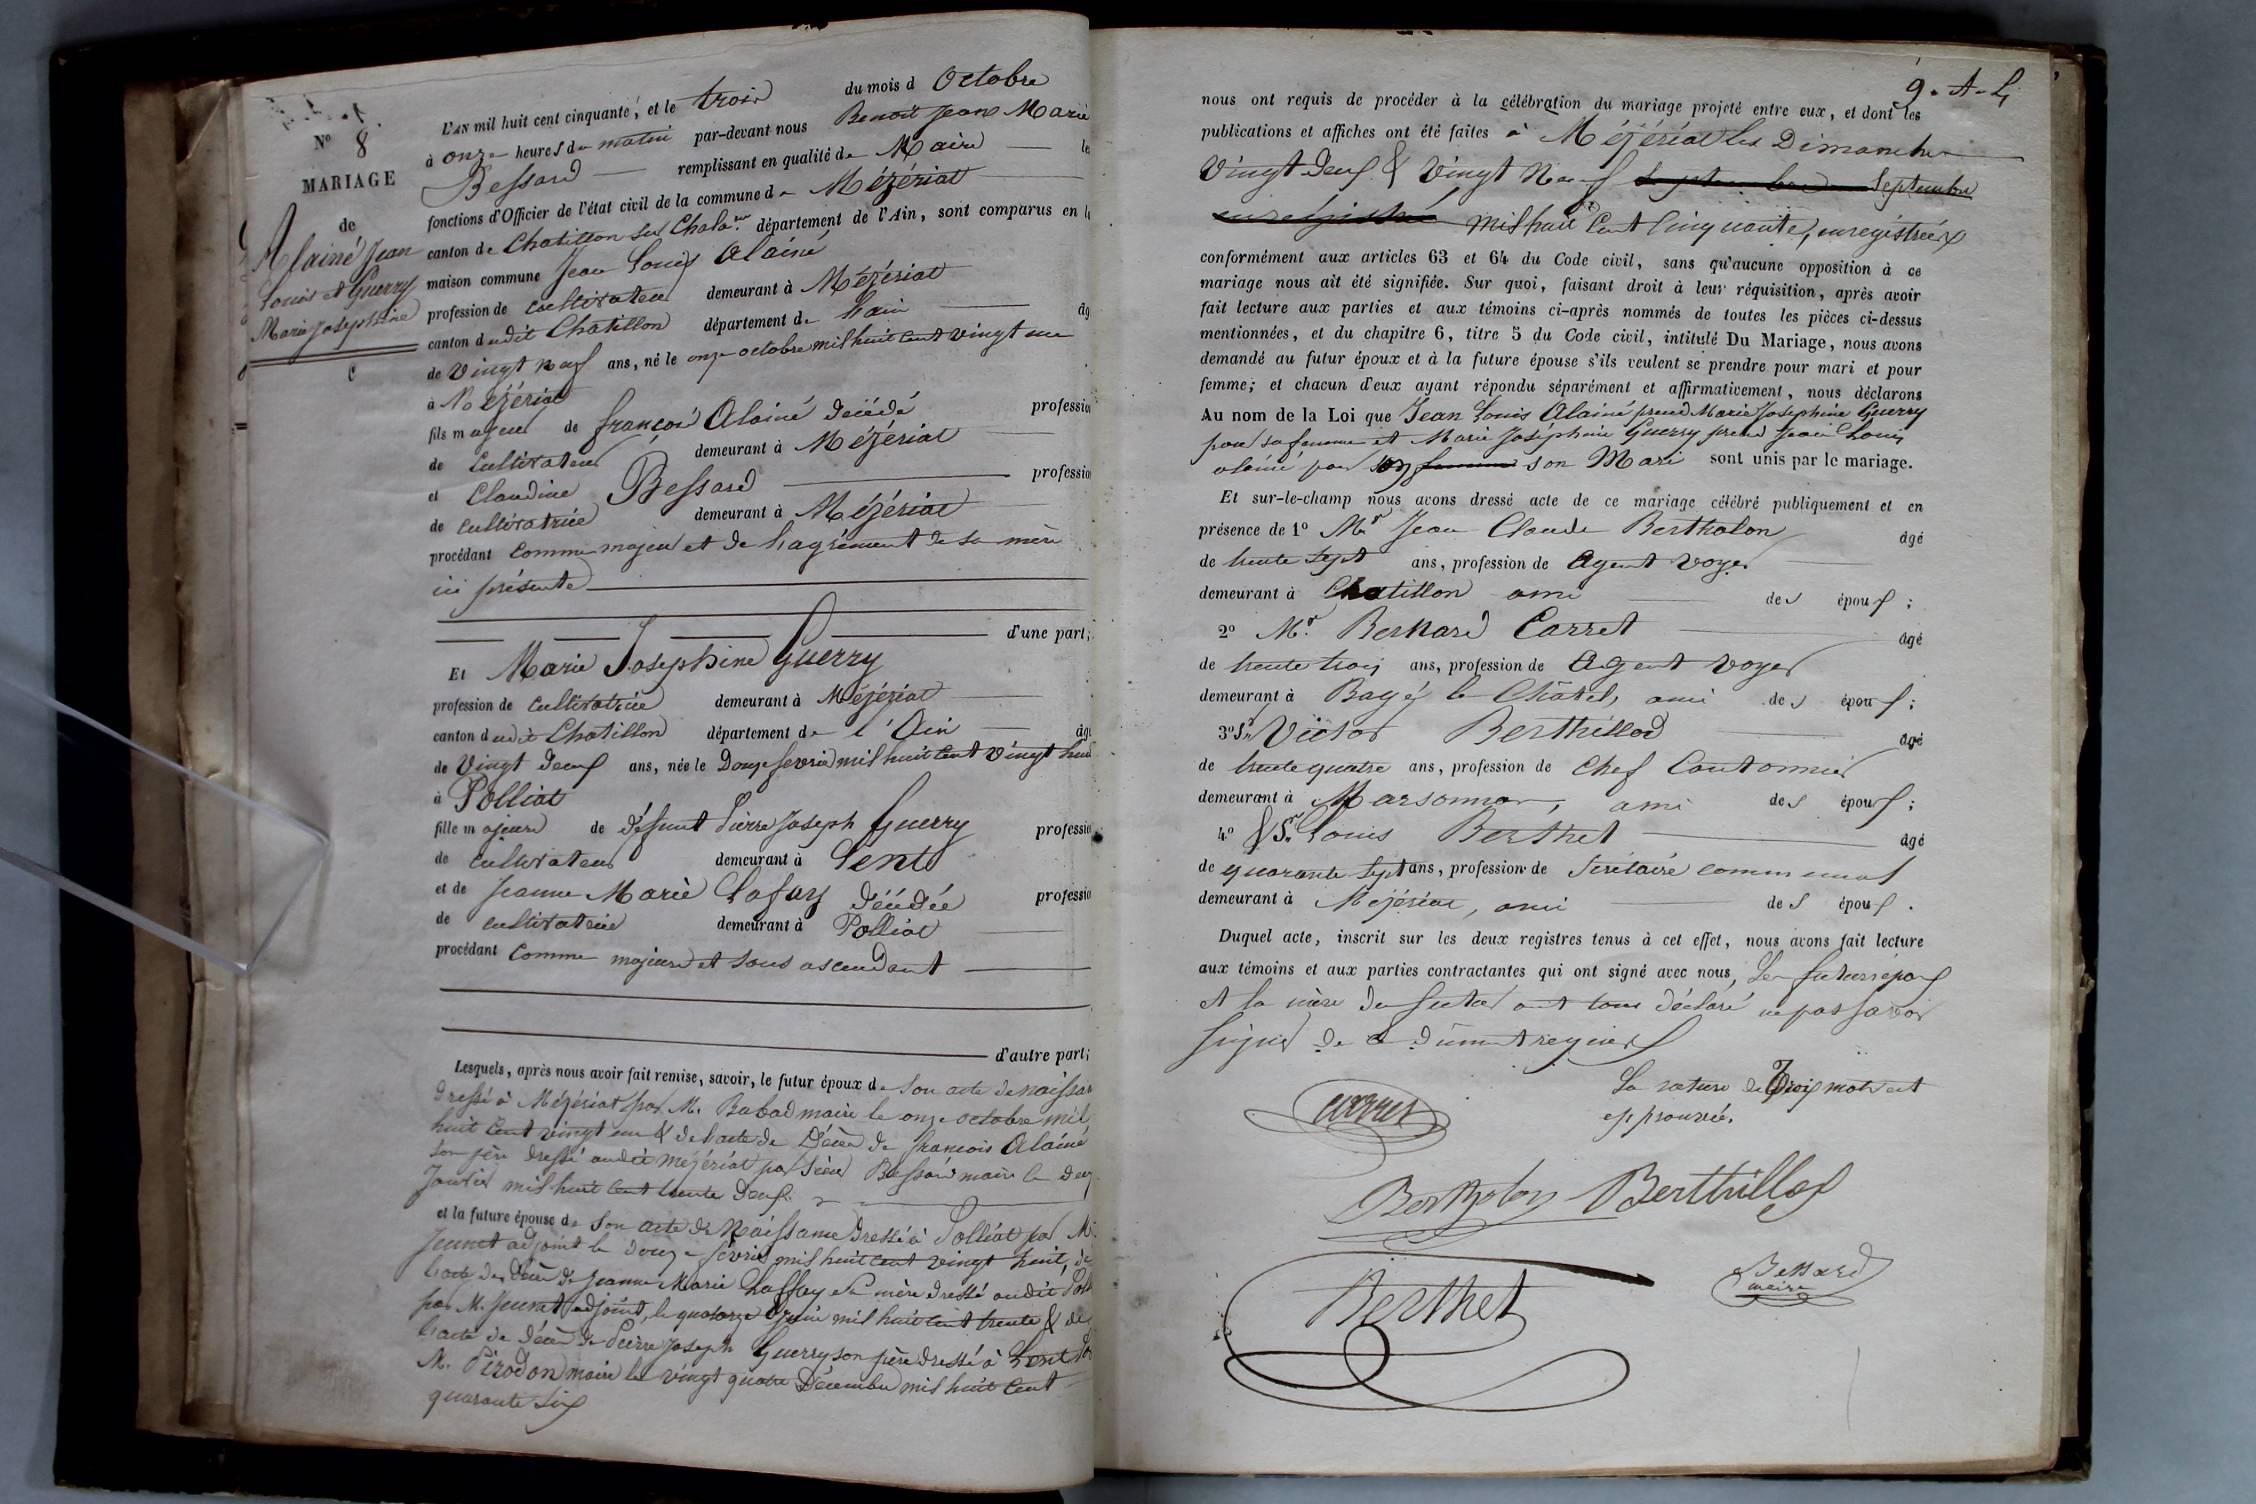 N° 8
MARIAGE
de
Alainé Jean
Louis et Guerry
Marie Josephine
L'AN mil huit cent cinquante, et le trois du mois d Octobre
à onze heures du matin par-devant nous Benoit Jean Marie
Bessard remplissant en qualité de Maire les
fonctions d'Officier de l'état civil de la commune de Mézériat
canton de Chatillon sur Chalar.ne département de l'Ain, sont comparus en la
maison commune Jean Louis Alainé
profession de cultivateur demeurant à Mézériat
canton dudit Chatillon département de l'ain âg
de vingt neuf ans, né le onze octobre mil huit cent vingt un
à Mézériat
fils majeur de françois Alainé décédé professio
de cultivateur demeurant à Mézériat
et Claudine Bessard professio
de cultivatrice demeurant à Mézériat
procédant comme majeur et de l'agrément de sa mère
ici présente
d'une part;
Et Marie Josephine Guerry
profession de cultivatrice demeurant à Mézériat
canton dudit Chatillon département de l'Ain âgé
de vingt deux ans, née le Douze fevrier mil huit cent vingt huit
à Polliat
fille majeure de défunt Pierre Joseph Guerry professio
de cultivateur demeurant à Lent
et de Jeanne Marie Lafay décédée professio
de cultivatrice demeurant à Polliat
procédant comme majeure et sans ascendant
d'autre part;
Lesquels, après nous avoir fait remise, savoir, le futur époux de son acte de naissan
dressé à Mézériat par M. Rabad maire le onze octobre mil
huit cent vingt un & de l'acte de Décès de francois Alainé
son père dressé audit mézériat par sieur Bessard maire le deux
Janvier mil huit cent trente deux.
et la future épouse de son acte de Naissance dressé à Polliat par M.
Jeunet adjoint le douze février mil huit cent vingt huit, de
l'acte de décès de Jeanne Marie Laffay sa mère dressé audit Poll
par M. Jeunet adjoint, le quatorze juin mil huit cent trente & de
l'acte de décès de Pierre Joseph Guerry son père dressé à Lent par
M. Pirodon maire le vingt quatre Décembre mil huit cent
quarante six
9. A. L
nous ont requis de procéder à la célébration du mariage projeté entre eux, et dont les
publications et affiches ont été faites à Mézériat les Dimanches
vingt deux & vingt Neuf septembre Septembre
enregistré mil huit Cent Cinquante, enregistrées
conformément aux articles 63 et 64 du Code civil, sans qu'aucune opposition à ce
mariage nous ait été signifiée. Sur quoi, faisant droit à leur réquisition, après avoir
fait lecture aux parties et aux témoins ci-après nommés de toutes les pièces ci-dessus
mentionnées, et du chapitre 6, titre 5 du Code civil, intitulé Du Mariage, nous avons
demandé au futur époux et à la future épouse s'ils veulent se prendre pour mari et pour
femme; et chacun d'eux ayant répondu séparément et affirmativement, nous déclarons
Au nom de la Loi que Jean Louis Alainé prend Marie Josephine Guerry
pour sa femme et Marie Joséphine Guerry prend Jean Louis
alainé pour son femme son Mari sont unis par le mariage.
Et sur-le-champ nous avons dressé acte de ce mariage célébré publiquement et en
présence de 1° Mr Jean Claude Bertholon âgé
de trente sept ans, profession de Agent voyer
demeurant à Chatillon ami des époux;
2° Mr. Bernard Carret âgé
de trente trois ans, profession de Agent voyer
demeurant à Bagé le Châtel, ami des époux;
3° Sr Victor Berthillod âgé
de trente quatre ans, profession de Chef Cantonnier
demeurant à Marsonnas, ami des époux;
4° & Sr. Louis Berthet âgé
de quarante sept ans, profession de Secrétaire communal
demeurant à Mézériat, ami des époux.
Duquel acte, inscrit sur les deux registres tenus à cet effet, nous avons fait lecture
aux témoins et aux parties contractantes qui ont signé avec nous, Les futurs époux
et la mère du futur ont tous déclaré ne pas savoir
signer de ce dûment requis
La rature de Trois mots est
approuvée.
Carret
Bertholon Berthillod
Berthet
Bessard
maire